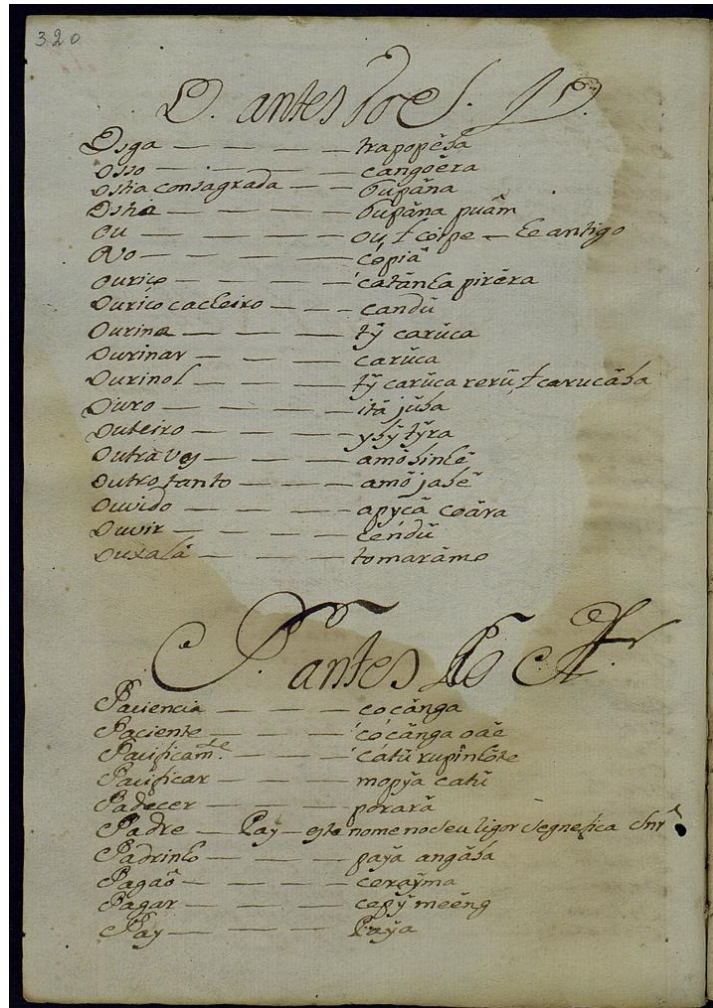 320
O. antes do S.
Osga — — — — trapopéba
Osso — — — — cangoëra
Ostia consagrada — — Tupãna
Ostia — — — — Tupãna puãm
Ou — — — — ou, t coipe — he antigo
Ovo — — — — çópiâ
Ouriço — — — çatãnha pirëra
Ouriço cacheiro — — — candû
Ourina — — — — tÿ carüca
Ourinar — — — — carüca
Ourinol — — — — tÿ carüca rerü, t carucäba
Ouro — — — — itä jüba
Outeiro — — — — ybÿ tÿra
Outra vez — — — — amö binhë
Outro tanto — — — amö jabë
Ouvido — — — — apycä coära
Ouvir — — — — çendü
Ouxalá — — — — tomaräme
P. antes do A.
Paciencia — — — — çoçänga
Paciente — — — — çoçänga oäe
Pacificamte — — — çatü rupïnhöte
Pacificar — — — — mopÿa catü
Padecer — — — — porarä
Padre — Pay — este nome no seu rigor segnefica Snr
Padrinho — — — — paÿa angäba
Pagaõ — — — — ceraÿma
Pagar — — — — cepÿ meëng
Pay — — — — Paÿa